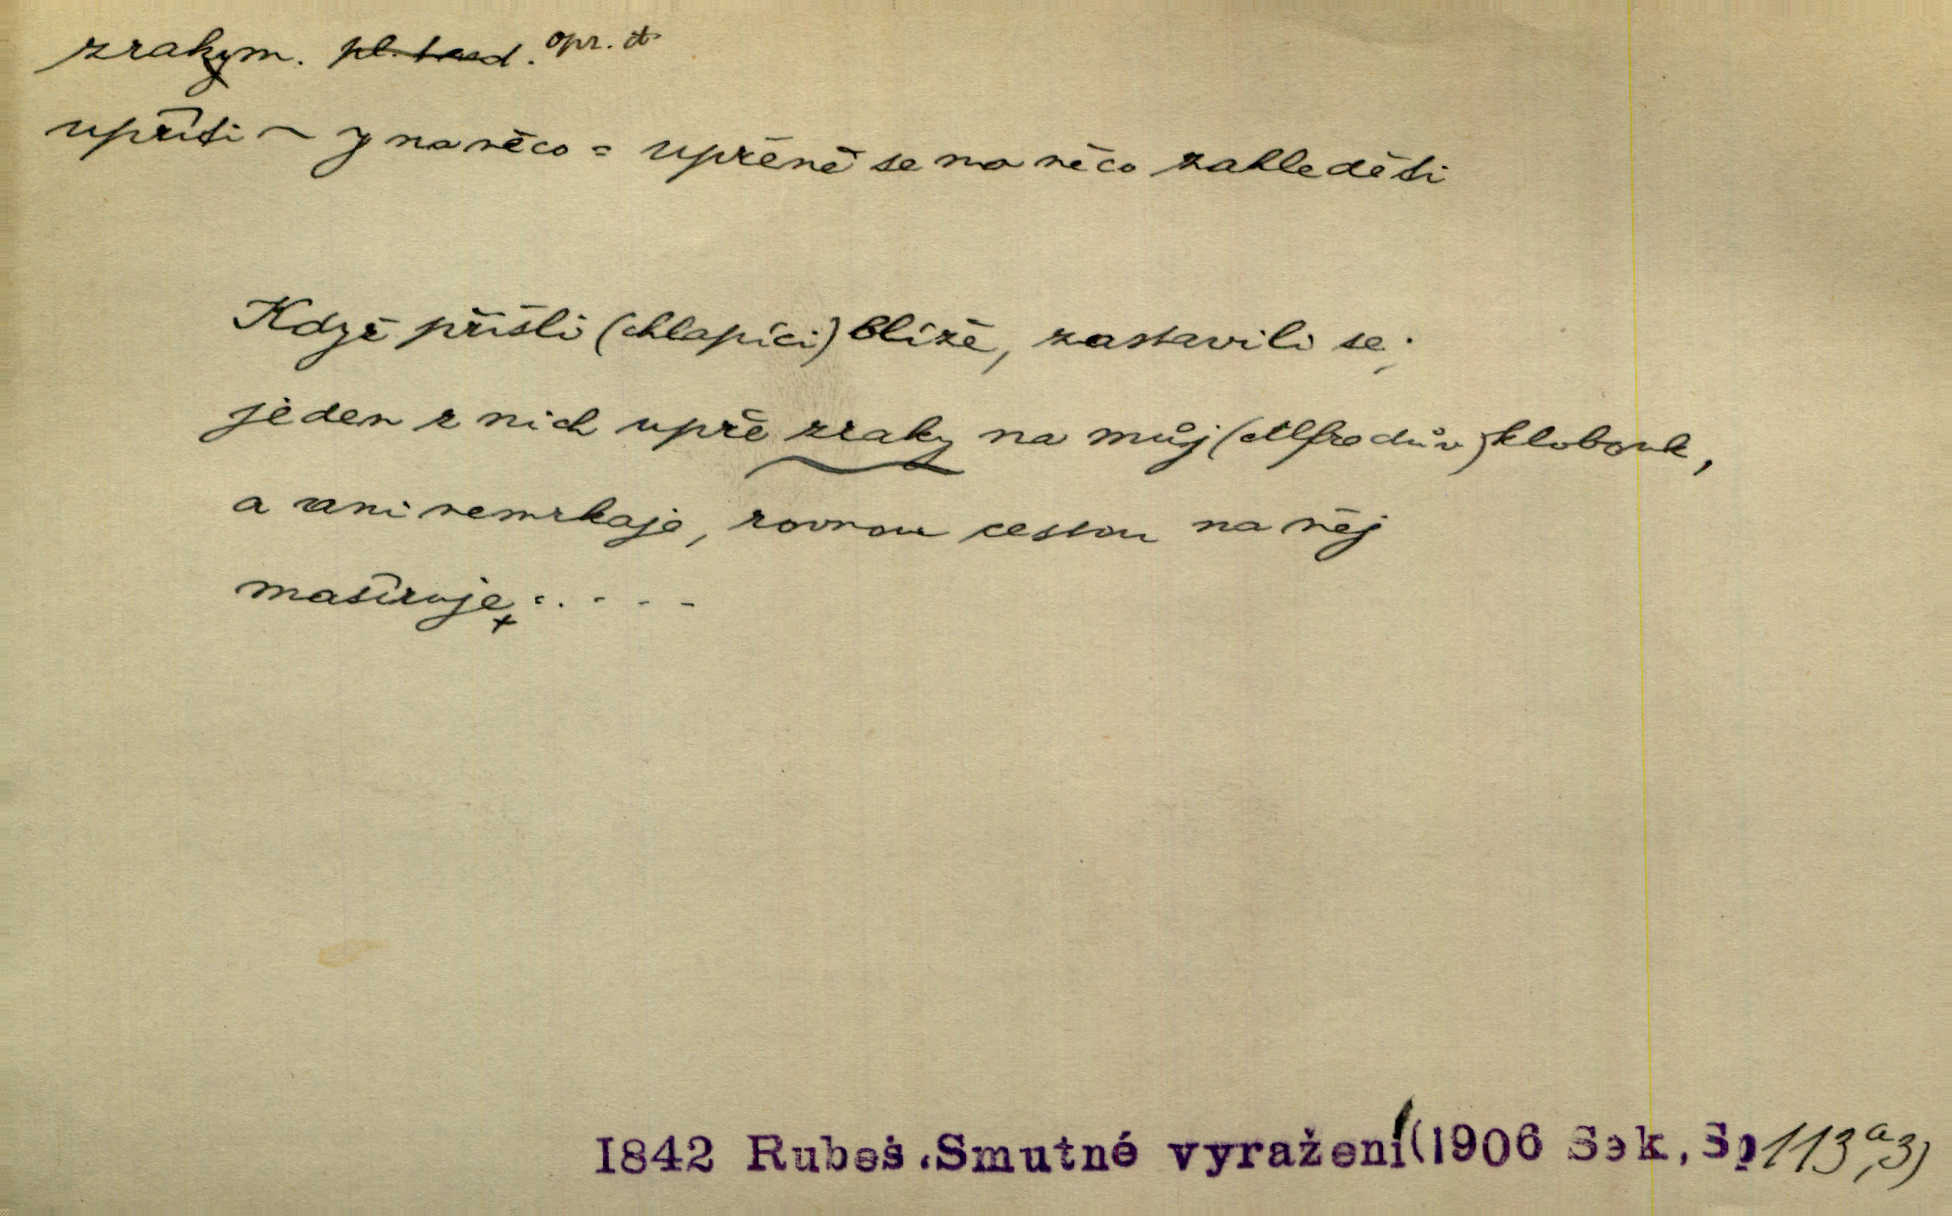 zraky m. pl. tand. opr. A
upříti ~ y na něco = upřeně se na něco zahleděti
Když přišli (chlapíci) blíže, zastavili se;
jeden z nich upře zraky na můj (Alfredův) klobouk,
a ani nemrkaje, rovnou cestou na něj
mašíruje
1842 Rubeš.Smutné vyražení(1906 Sek, Sp 113a,3)